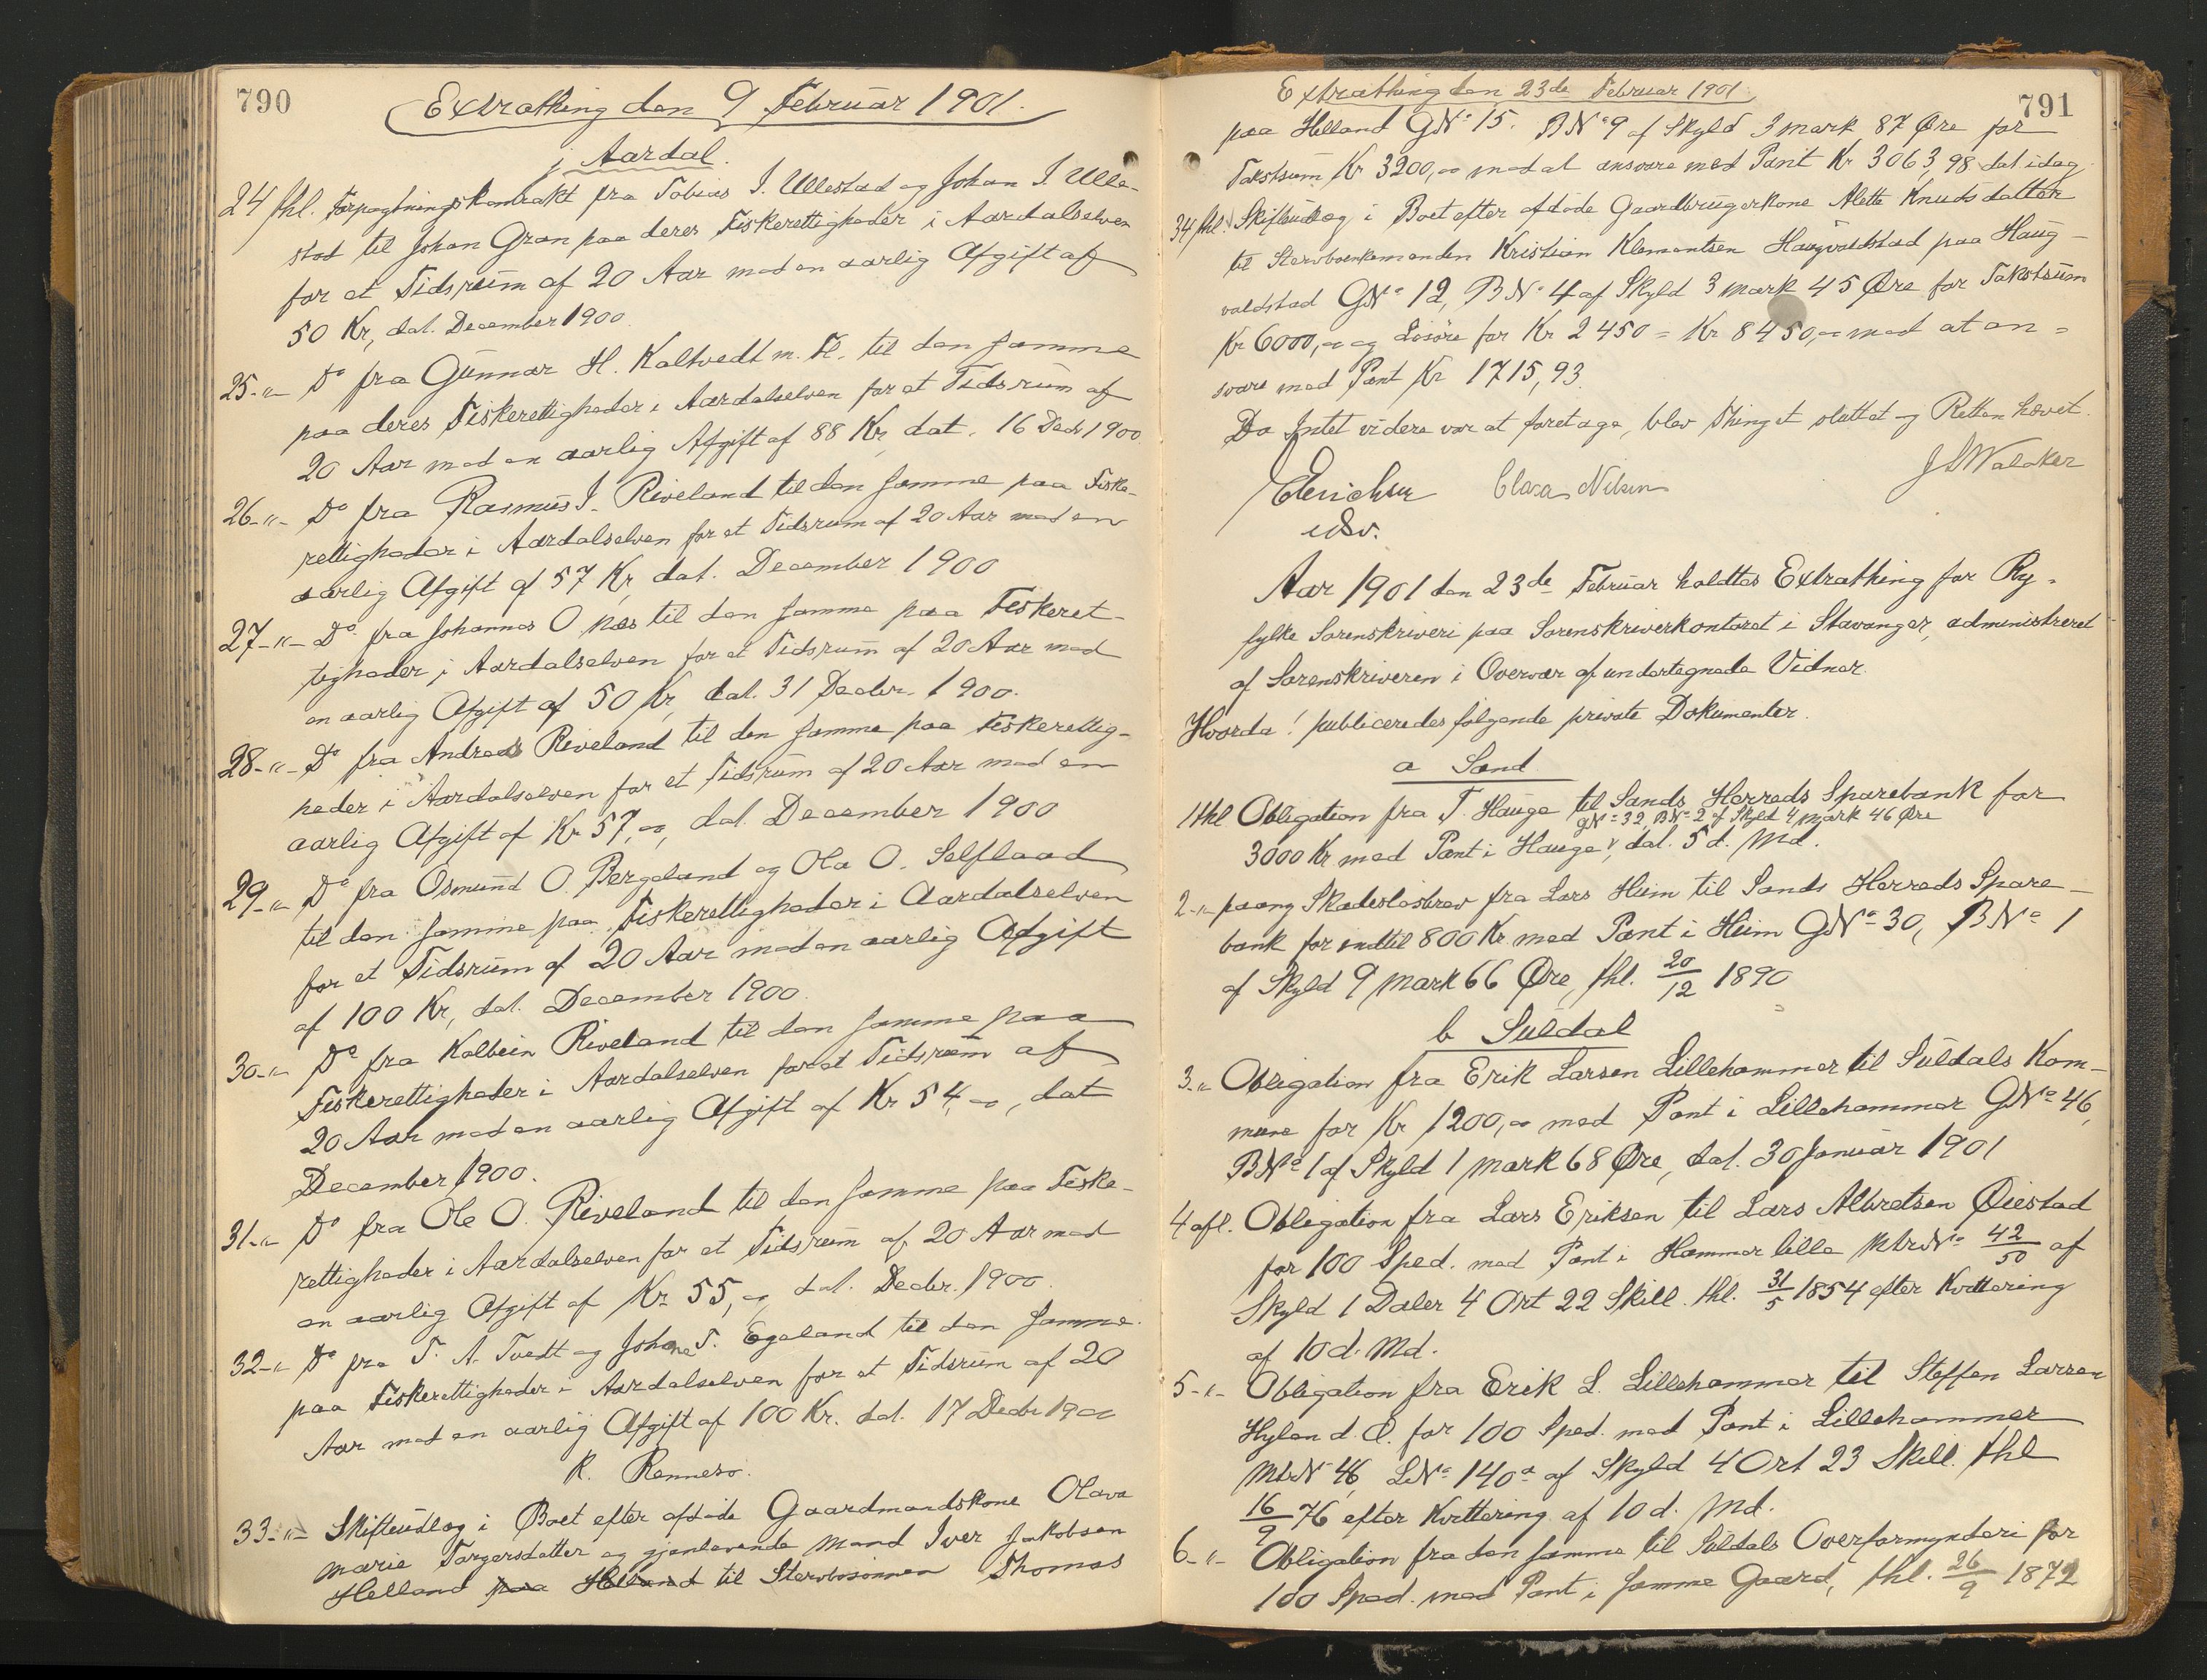 790
Extrathing den 9 Februar 1901.
j Aardal.
24 thl. Forpagtningskontrakt fra Tobias I. Ullestad og Johan I. Ulle-
stad til Johan Gran paa deres Fiskerettigheder i Aardalselven
for et Tidsrum af 20 Aar med en aarlig Afgift af
50 Kr, dat. December 1900.
25-"- Do fra Gunnar H. Kaltvedt m. Fl. til den samme
paa deres Fiskerettigheder i Aardalselven for et Tidsrum af
20 Aar med en aarlig Afgift af 88 Kr, dat. 16 Decbr 1900.
26-"- Do fra Rasmus I. Riveland til den samme paa Fiske-
rettigheder i Aardalselven for et Tidsrum af 20 Aar med en
aarlig Afgift af 57 Kr, dat. December 1900
27-"- Do fra Johannes O Næs til den samme paa Fiskeret-
tigheder i Aardalselven for et Tidsrum af 20 Aar med
en aarlig Afgift af 50 Kr, dat. 31 Decbr. 1900.
28-"- Do fra Andreas Riveland til den samme paa Fiskerettig-
heder i Aardalselven for et Tidsrum af 20 Aar med en
aarlig Afgift af Kr 57,oo, dat. December 1900
29-"- Do fra Osmund O. Bergeland og Ola O. Selflaad
til den samme paa Fiskerettigheder i Aardalselven
for et Tidsrum af 20 Aar med en aarlig Afgift
af 100 Kr, dat. December 1900.
30-"- Do fra Kolbein Riveland til den samme paa
Fiskerettigheder i Aardalselven for et Tidsrum af
20 Aar med en aarlig Afgift af Kr 54,oo, dat
December 1900.
31-"- Do fra Ole O. Riveland til den samme paa Fiske-
rettigheder i Aardalselven for et Tidsrum af 20 Aar med
en aarlig Afgift af Kr 55,oo, dat. Decbr. 1900.
32-"- Do fra T. A. Tvedt og Johane T. Egeland til den samme
paa Fiskerettigheder i Aardalselven for et Tidsrum af 20
Aar med en aarlig Afgift af 100 Kr. dat. 17 Decbr 1900
k. Rennesø.
33-"- Skifteudlæg i Boet efter afdøde Gaardmandskone Olava
Marie Torgersdatter og gjenlevende Mand Iver Jakobsen
Helland paa Helland til Stervbosønnen Thomas
791
Extrathing den 23de Februar 1901.
paa Helland GNo 15. BNo 9 af Skyld 3 Mark 87 Øre for
Takstsum Kr 3200,oo med at ansvare med Pant Kr 3063,98 dat idag.
34 thl. Skifteudlæg i Boet efter afdøde Gaardbrugerkone Alette Knudsdatter
til Stervboenkemanden Kristian Klementsen Haugvaldstad paa Haug-
valdstad GNo 12, BNo 4 af Skyld 3 Mark 45 Øre for Takstsum
Kr 6000,oo og Løsøre for Kr 2450 = Kr 8450,oo med at an-
svare med Pant Kr 1715,93.
Da Intet videre var at foretage, blev Thinget sluttet og Retten hævet.
Clara Nilsen
Aar 1901 den 23de Februar holdtes Extrathing for Ry-
fylke Sorenskriveri paa Sorenskriverkontoret i Stavanger, administreret
af Sorenskriveren i Overvær af undertegnede Vidner.
Hvorda! publiceredes følgende private Dokumenter.
a Sand
1 thl Obligation fra T. Hauge til Sands Herreds Sparebank for
GNo 32, BNo 2 af Skyld 4 Mark 46 Øre
3000 Kr med Pant i Hauge, dat. 5 d. Md.
2-"- paany Skadesløsbrev fra Lars Heim til Sands Herreds Spare-
bank for indtil 800 Kr med Pant i Heim GNo 30, BNo 1
af Skyld 9 Mark 66 Øre, thl. 20/12 1890
b Suldal
3-"- Obligation fra Erik Larsen Lillehammer til Suldals Kom-
mune for Kr 1200,oo med Pant i Lillehammer GNo 46,
BNo 1 af Skyld 1 Mark 68 Øre, dat. 30 Januar 1901
4 afl. Obligation fra Lars Eriksen til Lars Albretsen Øiestad
for 100 Spd. med Pant i Hammer lille MtrNo 42/50 af
Skyld 1 Daler 4 Ort 22 Skill. thl. 31/5 1854 efter Kvittering
af 10 d. Md.
5-"- Obligation fra Erik L. Lillehammer til Steffen Larsen
Hylen d. Æ. for 100 Spd. med Pant i Lillehammer
MtrNo 46, LNo 140a af Skyld 4 Ort 23 Skill. thl
16/9 76 efter Kvittering af 10 d. Md.
6-"- Obligation fra den samme til Suldals Overformynderi for
100 Spd. med Pant i samme Gaard, thl. 26/9 1872